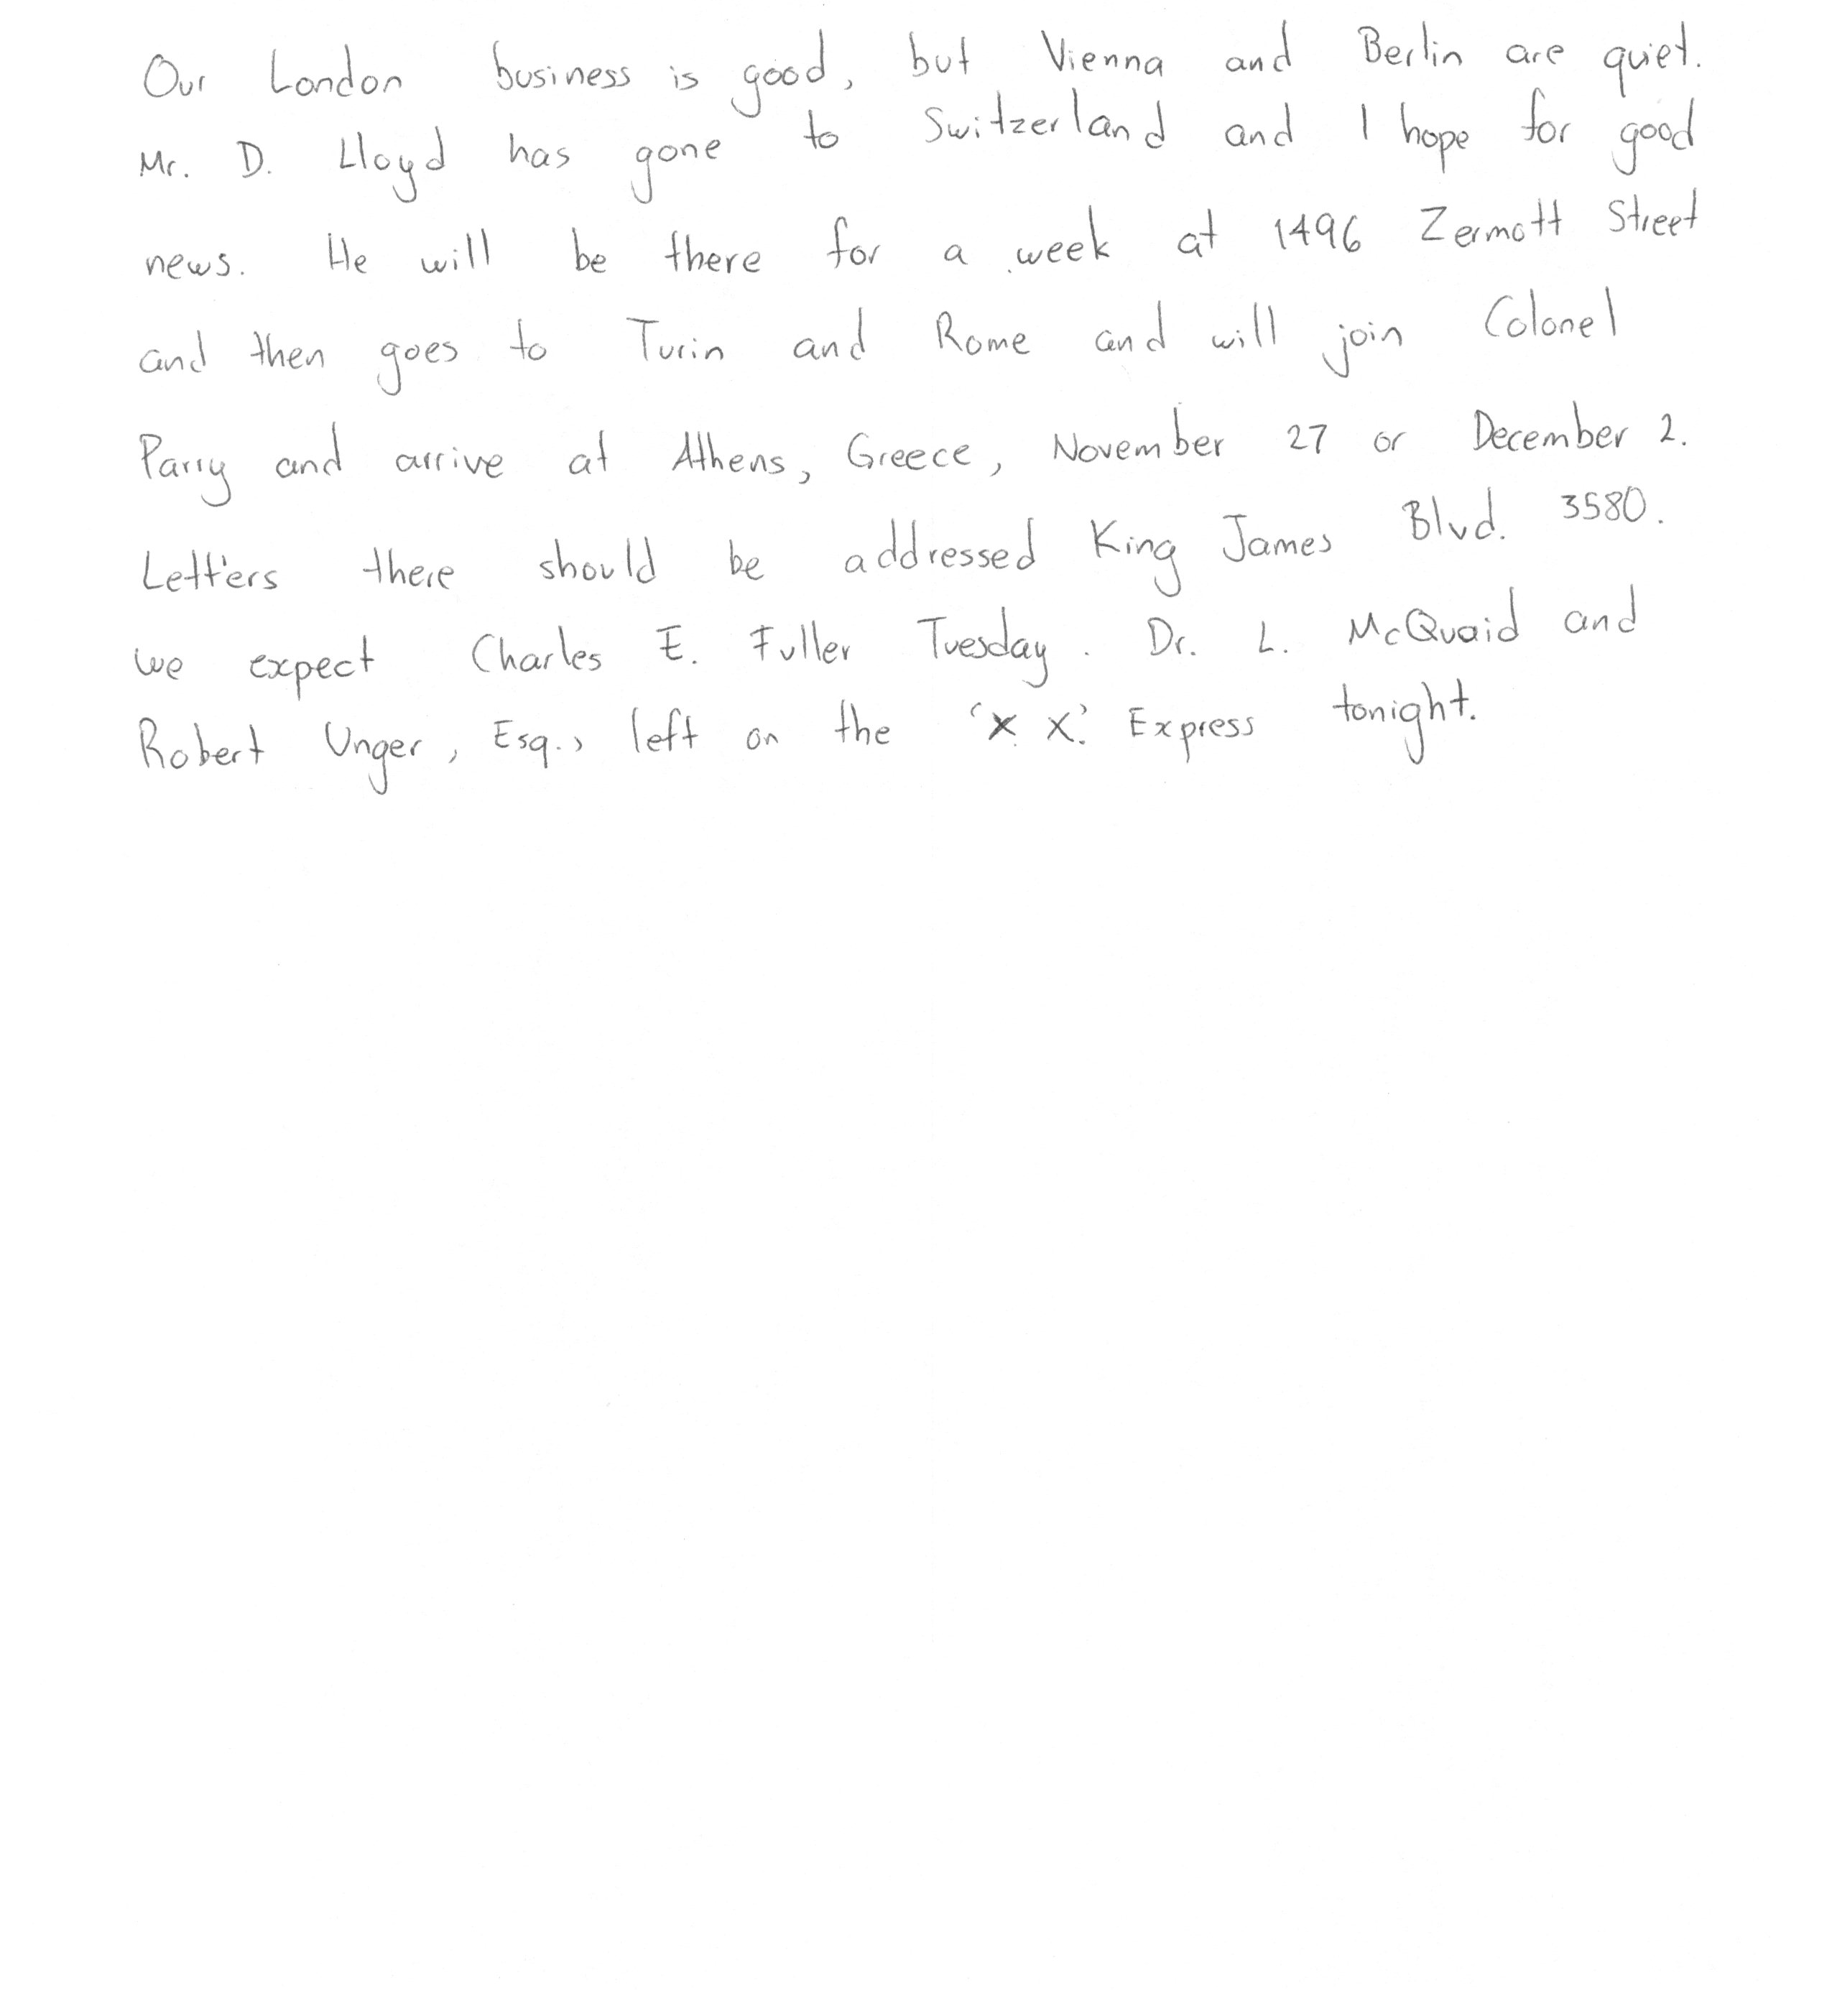 Our London business is good, but Vienna and Berlin are quiet.
Mr. D. Lloyd has gone to Switzerland and I hope for good
news. He will be there for a week at 1496 Zermott Street
and then goes to Turin and Rome and will join Colonel
Parry and arrive at Athens, Greece, November 27 or December 2.
Letters there should be addressed King James Blvd. 3580.
we expect Charles E. Fuller Tuesday. Dr. L. McQuaid and
Robert Unger, Esq., left on the 'X. X.' Express tonight.